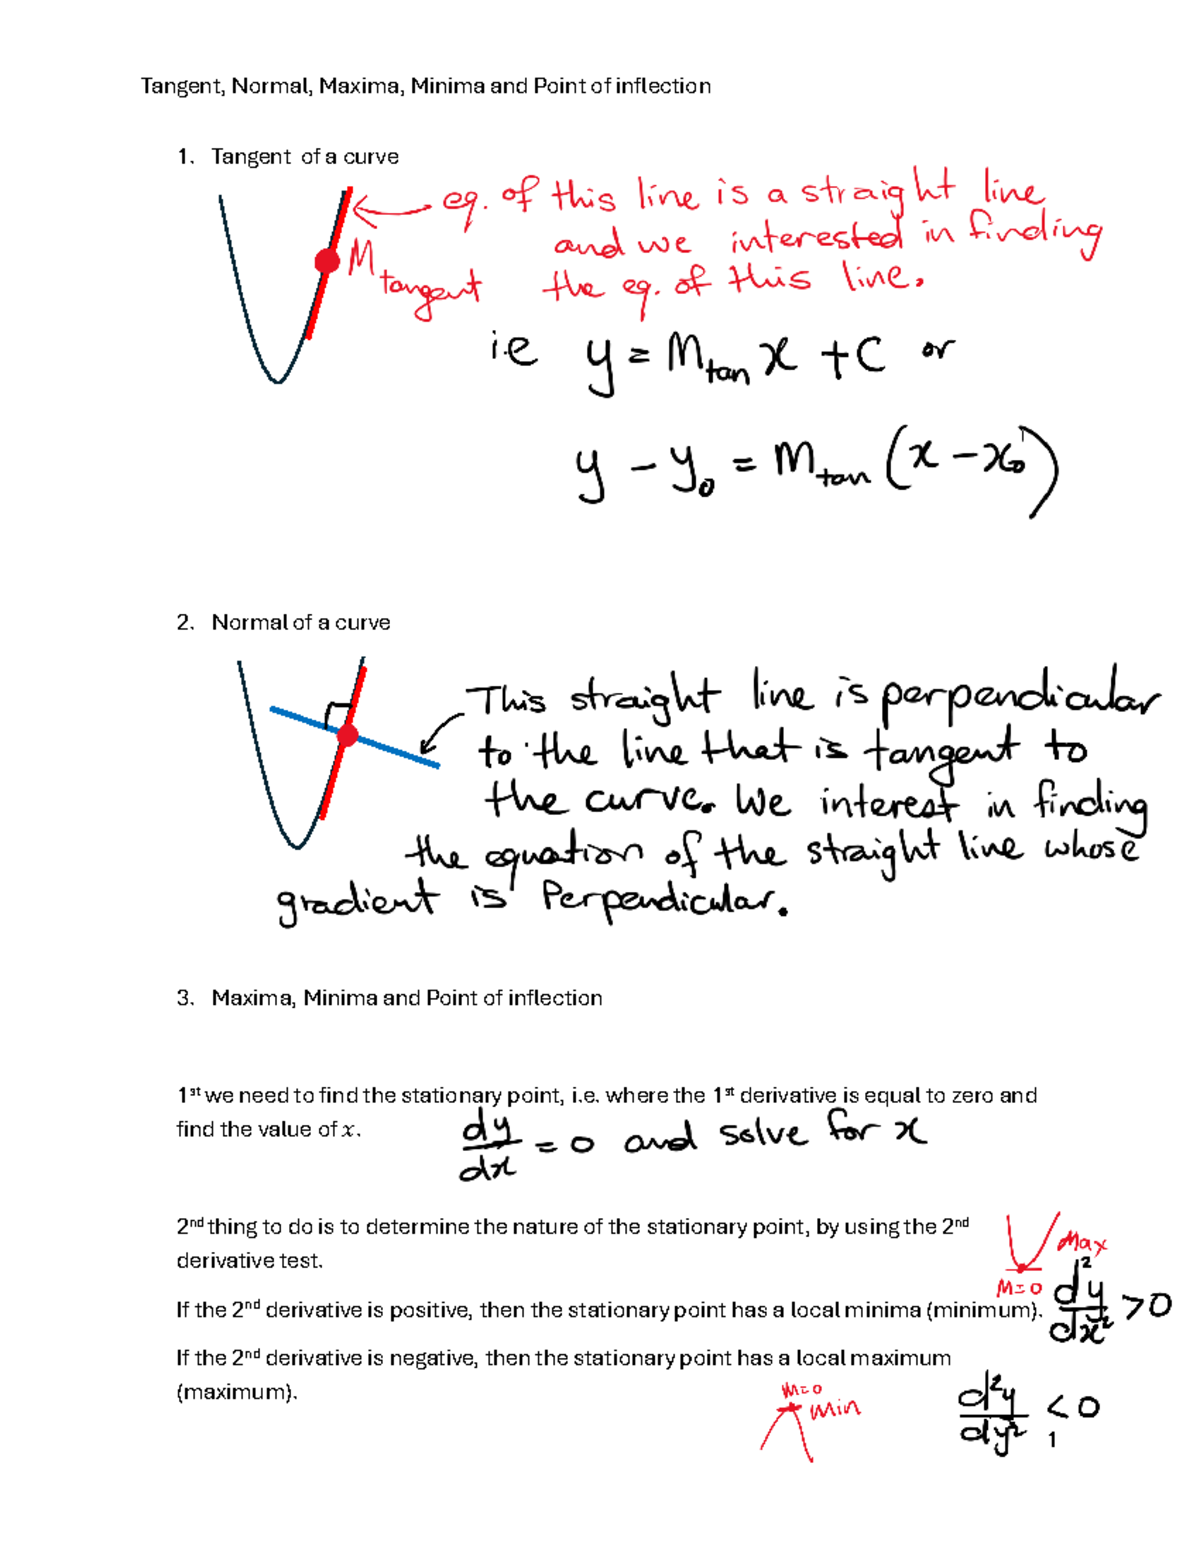 Tangent, Normal, Maxima, Minima and Point of inflection
1. Tangent of a curve
eq. of this line is a straight line
and we interested in finding
the eq. of this line.
M tangent
i.e y = M_tan x + C or
y - y₀ = M_tan (x - x₀)
2. Normal of a curve
This straight line is perpendicular
to the line that is tangent to
the curve. We interest in finding
the equation of the straight line whose
gradient is Perpendicular.
3. Maxima, Minima and Point of inflection
1st we need to find the stationary point, i.e. where the 1st derivative is equal to zero and
find the value of x.
dy/dx = 0 and solve for x
2nd thing to do is to determine the nature of the stationary point, by using the 2nd
derivative test.
Max
M=0
If the 2nd derivative is positive, then the stationary point has a local minima (minimum).
d²y/dx² > 0
If the 2nd derivative is negative, then the stationary point has a local maximum
(maximum).
M=0
min
d²y/dy² < 0
1